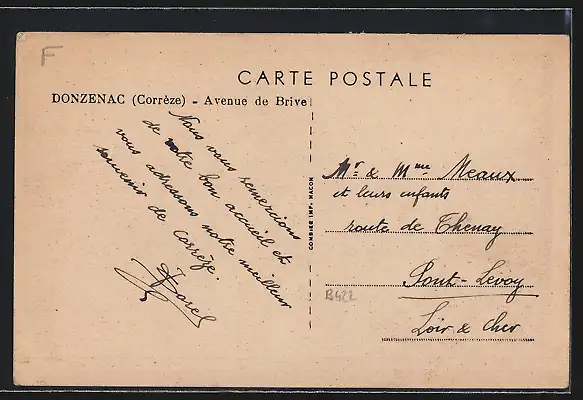 F
CARTE POSTALE
DONZENAC (Corrèze) - Avenue de Brive
Nous vous remercions
de votre bon accueil et
vous adressons notre meilleur
souvenir de Corrèze.
COMBIER IMP. MACON
Mr & Mme Meaux
et leurs enfants
route de Thenay
Pont-Levoy
Loir & Cher
B422